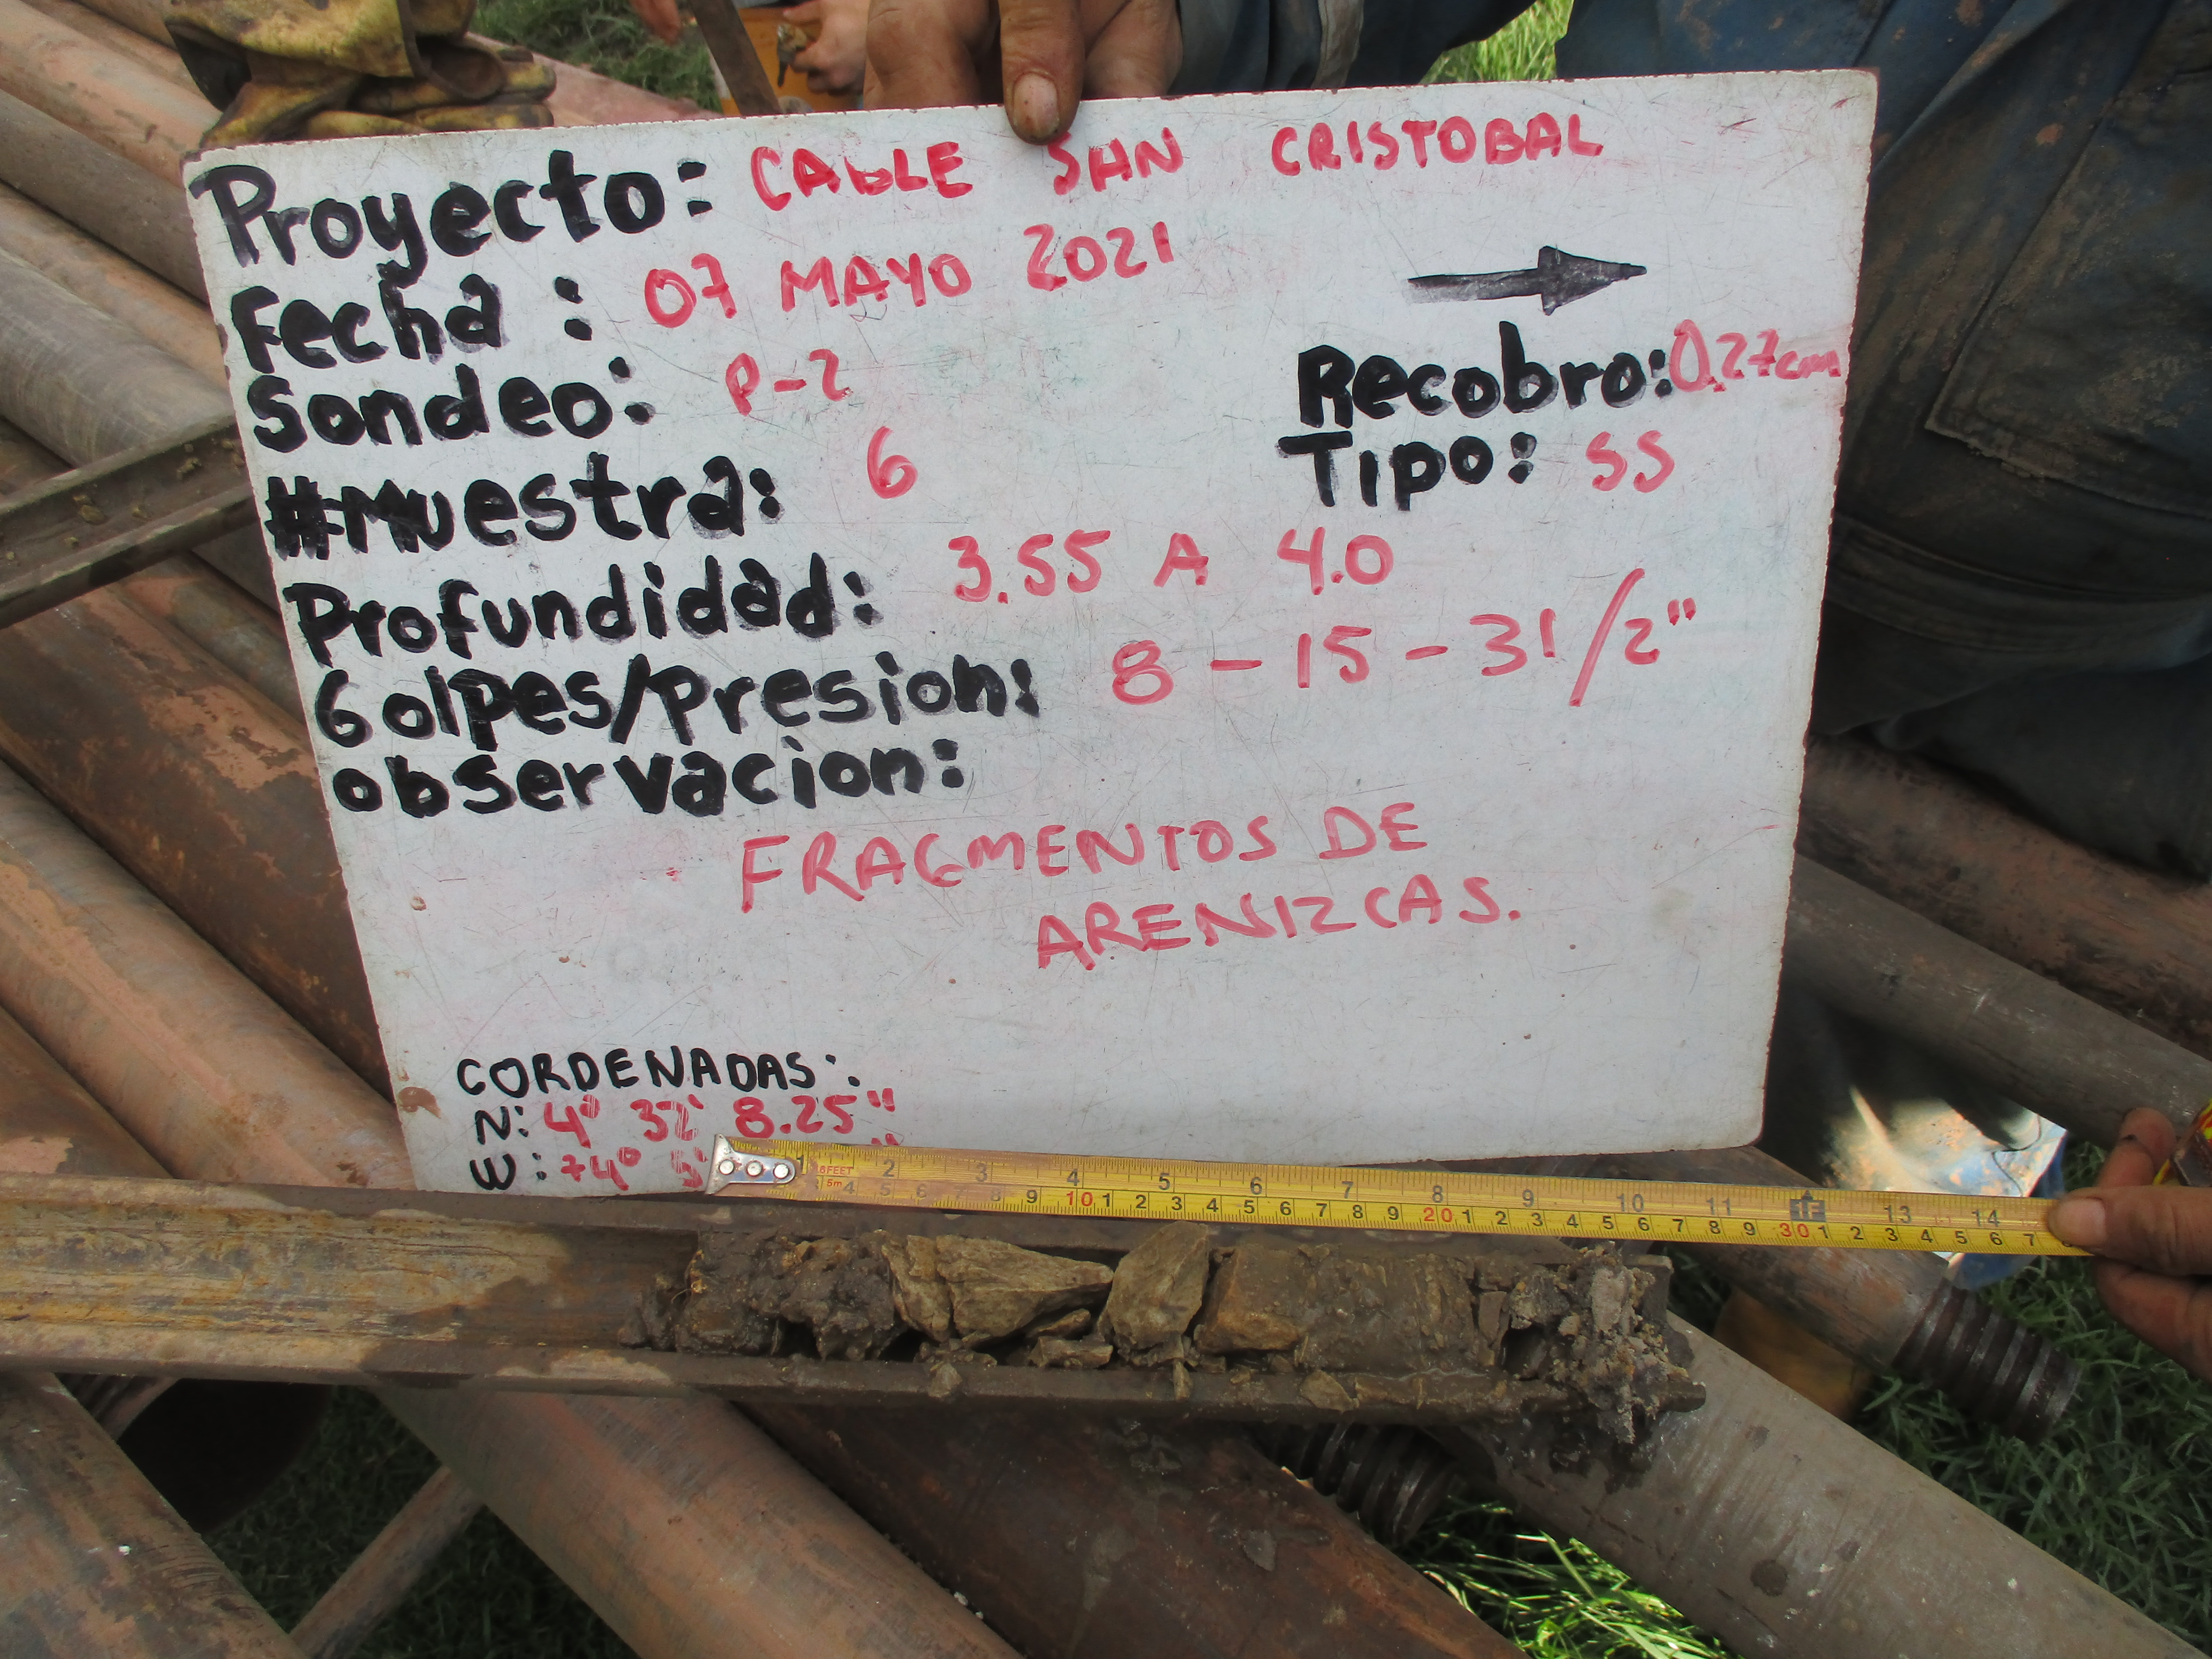 Proyecto: CABLE SAN CRISTOBAL
Fecha: 07 MAYO 2021
Sondeo: P-2
Recobro: 0.27cm
#Muestra: 6
Tipo: SS
Profundidad: 3.55 A 4.0
Golpes/Presion: 8 - 15 - 31/2"
observacion:
FRAGMENTOS DE
ARENIZCAS.
CORDENADAS:
N: 4° 32' 8.25"
W: 74° 5'
1 2 3 4 5 6 7 8 9 10 11 1F 13 14
5m 4 5 6 7 8 9 10 1 2 3 4 5 6 7 8 9 20 1 2 3 4 5 6 7 8 9 30 1 2 3 4 5 6 7 8